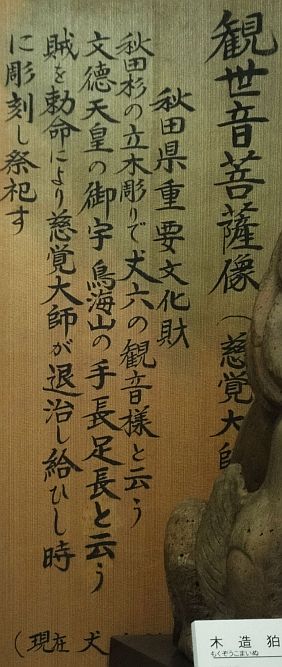 観世音菩薩像（慈覚大師
秋田県重要文化財
秋田杉の立木彫りで犬六の観音様と云う
文徳天皇の御宇鳥海山の手長足長と云う
賊を勅命により慈覚大師が退治し給ひし時
に彫刻し祭祀す
（現在 犬
木造狛
もくぞうこまいぬ